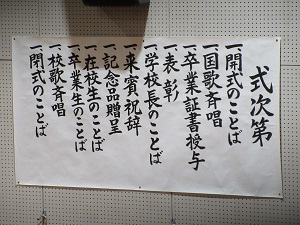 式次第
一、開式のことば
一、国歌斉唱
一、卒業証書授与
一、表彰
一、学校長のことば
一、来賓祝辞
一、記念品贈呈
一、在校生のことば
一、卒業生のことば
一、校歌斉唱
一、閉式のことば